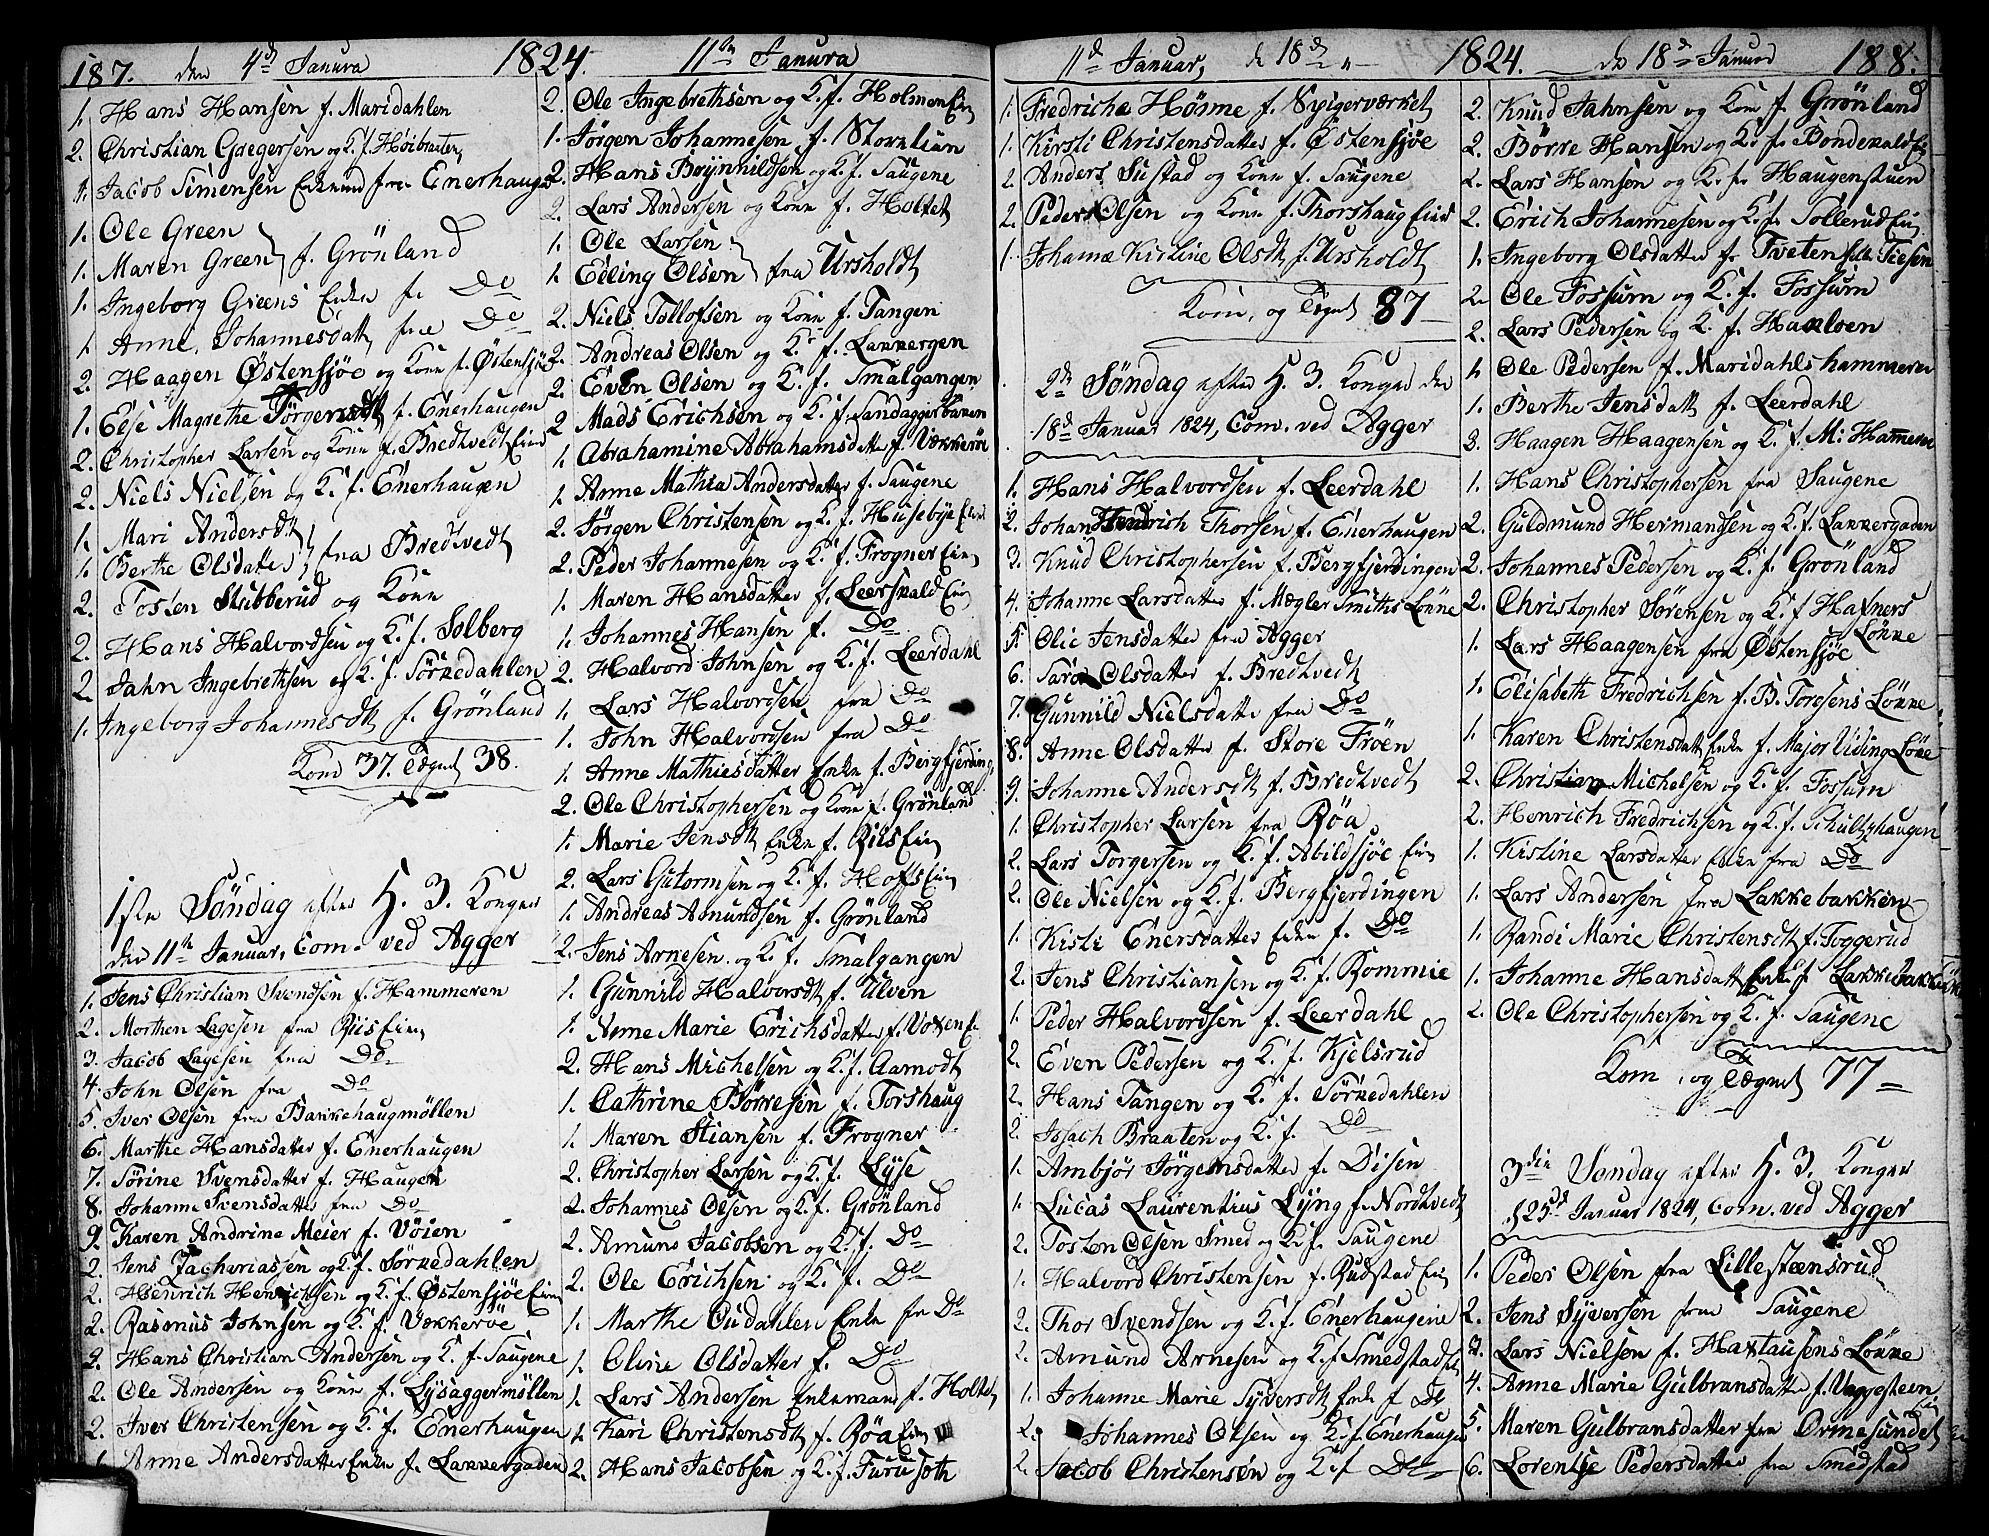 187. den 4de Janura 1824. 11te Janura
1. Hans Hansen f. Maridahlen
2. Christian Gregersen og K. f. Høibraaten
1. Jacob Simensen Enkemd fra Enerhaugen
1. Ole Green
1. Maren Green f. Grönland
1. Ingeborg Greens Enke f. Do
1. Anne Johannesdatt fra Do
2. Haagen Østensjøe og Kone f. Østensjøe
1. Else Magrethe Jörgensdt f. Enerhaugen
2. Christopher Larsen og Kone f. Bredtvedt Eie
2. Niels Nielsen og K. f. Enerhaugen
1. Mari Andersdt
1. Berthe Olsdatter fra Bredtvedt
2. Tosten Stubberud og Kone
2. Hans Halvordsen og K. f. Solberg
2. Jahn Ingebrethsen og K. f. Sörkedahlen
1. Ingeborg Johannesdt f. Grönland
Kom 37. Tegnet 38.
1ste Søndag efter H. 3. Konger
den 11te Januar, Com. ved Agger
1. Jens Christian Svendsen f. Hammeren
2. Morthen Lagesen fra Riis Eie
3. Jacob Lagesen fra Do
4. John Olsen fra Do
5. Iver Olsen fra Bakkehaugmøllen
6. Marthe Hansdatter f. Enerhaugen
7. Sörine Svensdatter f. Haugen
8. Johanne Svensdatter fra Do
9. Karen Andrine Meier f. Vöien
2. Jens Zachariassen og K. f. Sörkedahlen
2. Henrich Henrichsen og K. f. Østensjøe Eie
2. Rasmus Johnsen og K. f. Vækkeröe
2. Hans Christian Andersen og K. f. Saugene
2. Ole Andersen og Kone f. Lysaggermöllen
2. Iver Christensen og K. f. Enerhaugen
1. Anne Andersdatter Enke f. Lakkergaden
2. Ole Ingebrethsen og K. f. Holmen Eie
1. Jörgen Johannesen f. Stovnlian
2. Hans Brynhildsen og K. f. Saugene
2. Lars Andersen og Kone f. Holtet
1. Ole Larsen
1. Edling Olsen fra Ursholdt
2. Niels Tollofsen og Kone f. Tangen
2. Andreas Olsen og K. f. Lakkergen
2. Even Olsen og K. f. Smalgangen
2. Mads Erichsen og K. f. Sandaggerbakken
1. Abrahamine Abrahamsdatter f. Vækkeröe
1. Anne Mathea Andersdatter f. Saugene
2. Jörgen Christensen og K. f. Husebye Eie
2. Peder Johannesen og K. f. Frogner Eie
1. Maren Hansdatter f. Leerskald Eie
1. Johannes Hansen f. Do
2. Halvord Johnsen og K. f. Leerdahl
1. Lars Halvordsen fra Do
1. John Halvordsen fra Do
1. Anne Mathiesdatter Enke f. Bergfjerding
2. Ole Christophersen og Kone f. Grönland
1. Marie Jensdt Enke f. Riis Eie
2. Lars Gutormsen og K. f. Hoffs Eie
1. Andreas Asmundsen f. Grönland
2. Jens Arnesen og K. f. Smalgangen
1. Gunnild Halvorsdt f. Ulven
1. Anne Marie Erichsdatter f. Voxen E.
2. Hans Michelsen og K. f. Aamodt
1. Cathrine Börresen f. Torshaug
1. Maren Stiansen f. Frogner
2. Christopher Larsen og K. f. Lyse
2. Johannes Olsen og K. f. Grönland
2. Amund Jacobsen og K. f. Do
2. Ole Erichsen og K. f. Do
1. Marthe Oudahlen Enke fr Do
1. Oline Olsdatter f. Do
1. Lars Andersen Enkemand f. Holtet
1. Kari Christensdt f. Röa Eie
2. Hans Jacobsen og K. f. Furuseth
11d Januar, d 18d 1824. do 18d Januar 188.
1. Fredricha Hösme f. Spigerværket
1. Kirsti Christensdatter f. Østensjøe
2. Anders Sustad og Kone f. Saugene
2. Peder Olsen og Kone f. Thorshaug Eie
1. Johanne Kirstine Olsdt f. Ursholdt
Kom, og Tegnet 87
2de Søndag efter H. 3. Konger den
18de Januar 1824, Com. ved Agger
1. Hans Halvordsen f. Leerdahl
2. Johan Hendrich Thorsen f. Enerhaugen
3. Knud Christophersen f. Bergfjerdingen
4. Johanne Larsdatter f. Mægler Smiths Løkke
5. Olie Jensdatter fra Agger
6. Saroe Olsdatter f. Bredtvedt
7. Gunnild Nielsdatter fra Do
8. Anne Olsdatter f. Store Fröen
9. Johanne Andersdt f. Bredtvedt
1. Christopher Larsen fra Röa
2. Lars Torgersen og K. f. Abildsjøe Eie
2. Ole Nielsen og K. f. Bergfjerdingen
1. Kisti Enersdatter Enke f. Do
2. Jens Christiansen og K. f. Rommie
1. Peder Halvordsen f. Leerdahl
2. Even Pedersen og K. f. Kjelsrud
2. Hans Tangen og K. f. Sörkedahlen
2. Issach Braaten og K. f. Do
1. Ambjör Jörgensdatter f. Disen
1. Lucas Laurentius Lyng f. Nordtvedt
2. Tosten Olsen Smed og K. f. Saugene
1. Halvord Christensen f. Rudstad Eie
2. Thor Svendsen og K. f. Enerhaugene
2. Amund Arnesen og K. f. Smedstad
1. Johanne Marie Syversdt Enke f Do
2. Johannes Olsen og K. f. Enerhaugen
2. Jacob Christensen og K. f Do
2. Knud Jahnsen og Kone f. Grönland
2. Börre Hansen og K. f. Bondekald Eie
2. Lars Hansen og K. f. Haugenstuen
2. Erich Johannesen og K. f. Tollerud Eie
1. Ingeborg Olsdatter fr Tveten Teisen
2. Ole Fossum og K. f. Fossum
2. Lars Pedersen og K. f. Haslven
1. Ole Pedersen f. Maridahlshammeren
1. Berthe Jensdatt f. Leerdahl
3. Haagen Haagensen og K. f. M: Hammeren
1. Hans Christophersen fra Saugene
2. Guldmund Hermandsen og K. f. Lakkergaden
2. Johannes Pedersen og K. f. Grönland
2. Christopher Sörensen og K. f Hafners Løkke
1. Lars Haagensen fra Østensjøe
1. Elisabeth Fredrichsen f. B. Torgsens Løkke
1. Karen Christensdatt Enke f. Major Uding Løkke
2. Christian Michelsen og K. f. Fossum
2. Henrich Fredrichsen og K. f. Schultzhaugen
1. Kistine Larsdatter Enke fra Do
1. Lars Andersen fra Lakkebakken
1. Randi Marie Christensdt f. Toggerud
1. Johanne Hansdatter Enke f. Lakkebakken
2. Ole Christophersen og K. f. Saugene
Kom, og Tegnet 77
3die Sønday efter H. 3. Konger
d 25de Januar 1824, Com. ved Agger
1. Peder Olsen fra Lillesteensrud
2. Jens Syversen fra Saugene
3. Lars Nielsen f. Haxtausens Løkke
4. Anne Marie Gulbransdatter f. Vaggesteen Eie
5. Maren Gulbransdatter fra Ormesundet
6. Lorentze Pedersdatter fra Smedstad